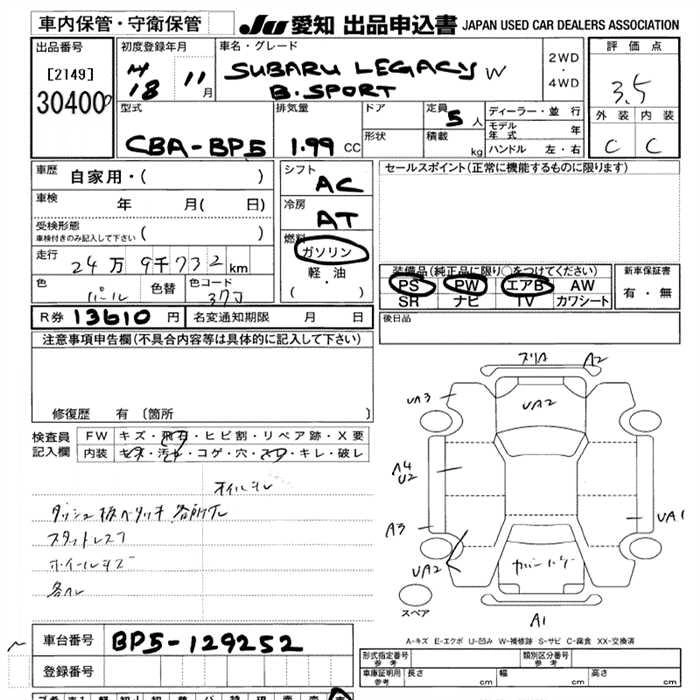 車内保管・守衛保管
JU 愛知 出品申込書 JAPAN USED CAR DEALERS ASSOCIATION
出品番号
[2149]
30400
初度登録年月
H18 年 11 月
車名・グレード
SUBARU LEGACY W
B.SPORT
2WD
・
4WD
評価点
3.5
外装 内装
C C
型式
CBA-BP5
排気量
1.99 CC
ドア
形状
定員
5 人
積載
kg
ディーラー・並行
モデル年式 年
ハンドル 左・右
車歴
自家用・( )
車検 年 月( 日)
受検形態
車検付きのみ記入して下さい ( )
走行
24万 9千732 km
色
パール
色替
色コード
37J
シフト
AC
冷房
AT
燃料
ガソリン
軽・油
・
( )
セールスポイント(正常に機能するものに限ります)
装備品(純正品に限り○をつけてください)
PS PW エアB AW
SR ナビ TV カワシート
新車保証書
有・無
後日品
R券 13610 円
名変通知期限 月 日
注意事項申告欄(不具合内容等は具体的に記入して下さい)
修復歴 有 〔箇所 〕
検査員
記入欄
FW キズ・飛石・ヒビ割・リペア跡・X要
内装 キズ・汚・コゲ・穴・スレ・キレ・破レ
オイルシレ
ダッシュ板ベタツキ
スタットレス
ホイールキズ
各スレ
ズリA A2
UA3
UA2
A4
U2
A3
UA1
UA2
A1
スペア
A-キズ E-エクボ U-凹み W-補修跡 S-サビ C-腐食 XX-交換済
車台番号
BP5-129252
登録番号
形式指定番号
参考
類別区分番号
参考
車庫証明用
参考
長さ cm
幅 cm
高さ cm